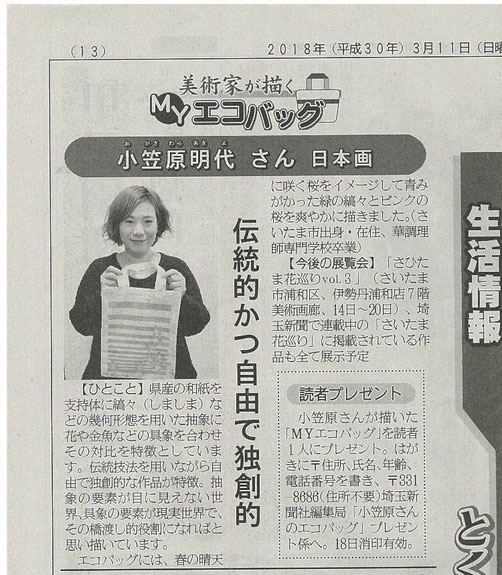 (13)
2018年(平成30年)3月11日(日曜
美術家が描く
MYエコバッグ
お がさ わら あき よ
小笠原明代 さん 日本画
伝統的かつ自由で独創的
【ひとこと】県産の和紙を
支持体に縞々(しましま)な
どの幾何形態を用いた抽象に
花や金魚などの具象を合わせ
その対比を特徴としていま
す。伝統技法を用いながら自
由で独創的な作品が特徴。抽
象の要素が目に見えない世
界、具象の要素が現実世界で、
その橋渡し的役割になればと
思い描いています。
エコバッグには、春の晴天
に咲く桜をイメージして青み
がかった緑の縞々とピンクの
桜を爽やかに描きました。(さ
いたま市出身・在住、華調理
師専門学校卒業)
【今後の展覧会】「さひた
ま花巡りvol.3」(さいたま
市浦和区、伊勢丹浦和店7階
美術画廊、14日~20日)、埼
玉新聞で連載中の「さいたま
花巡り」に掲載されている作
品も全て展示予定
読者プレゼント
小笠原さんが描いた
「MYエコバッグ」を読者
1人にプレゼント。はが
きに〒住所、氏名、年齢、
電話番号を書き、〒331
-8686(住所不要)埼玉新
聞社編集局「小笠原さん
のエコバッグ」プレゼン
ト係へ。18日消印有効。
生活情報
とく